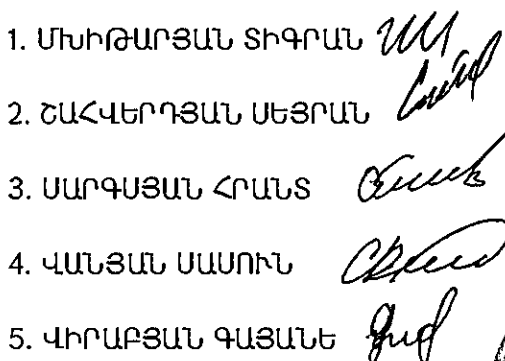 1. ՄԽԻԹԱՐՅԱՆ ՏԻԳՐԱՆ
2. ՇԱՀՎԵՐԴՅԱՆ ՍԵՅՐԱՆ
3. ՍԱՐԳՍՅԱՆ ՀՐԱՆՏ
4. ՎԱՆՅԱՆ ՍԱՍՈՒՆ
5. ՎԻՐԱԲՅԱՆ ԳԱՅԱՆԵ